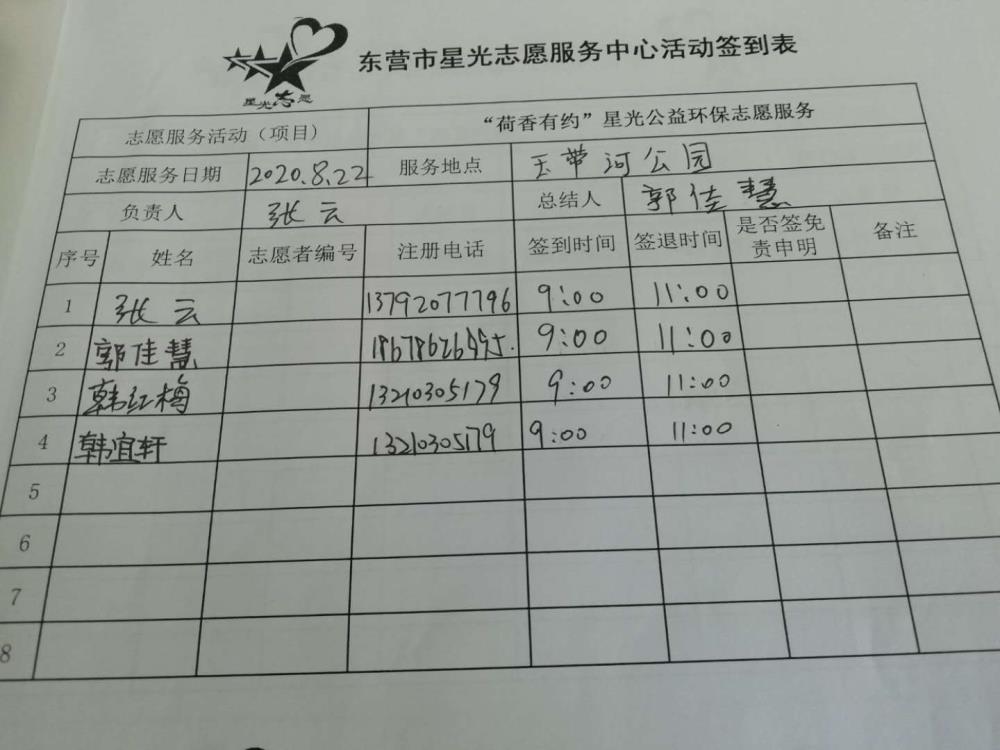 东营市星光志愿服务中心活动签到表
星光志愿
志愿服务活动（项目） “荷香有约”星光公益环保志愿服务
志愿服务日期 2020.8.22 服务地点 玉带河公园
负责人 张云 总结人 郭佳慧
序号 姓名 志愿者编号 注册电话 签到时间 签退时间 是否签免责申明 备注
1 张云 13792077796 9:00 11:00
2 郭佳慧 9:00 11:00
3 韩红梅 13210305179 9:00 11:00
4 韩宜轩 13210305179 9:00 11:00
5
6
7
8